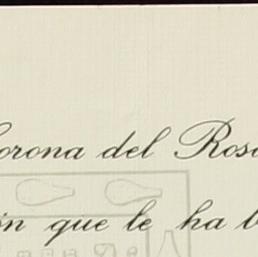 orona del Ros
ón que le ha b